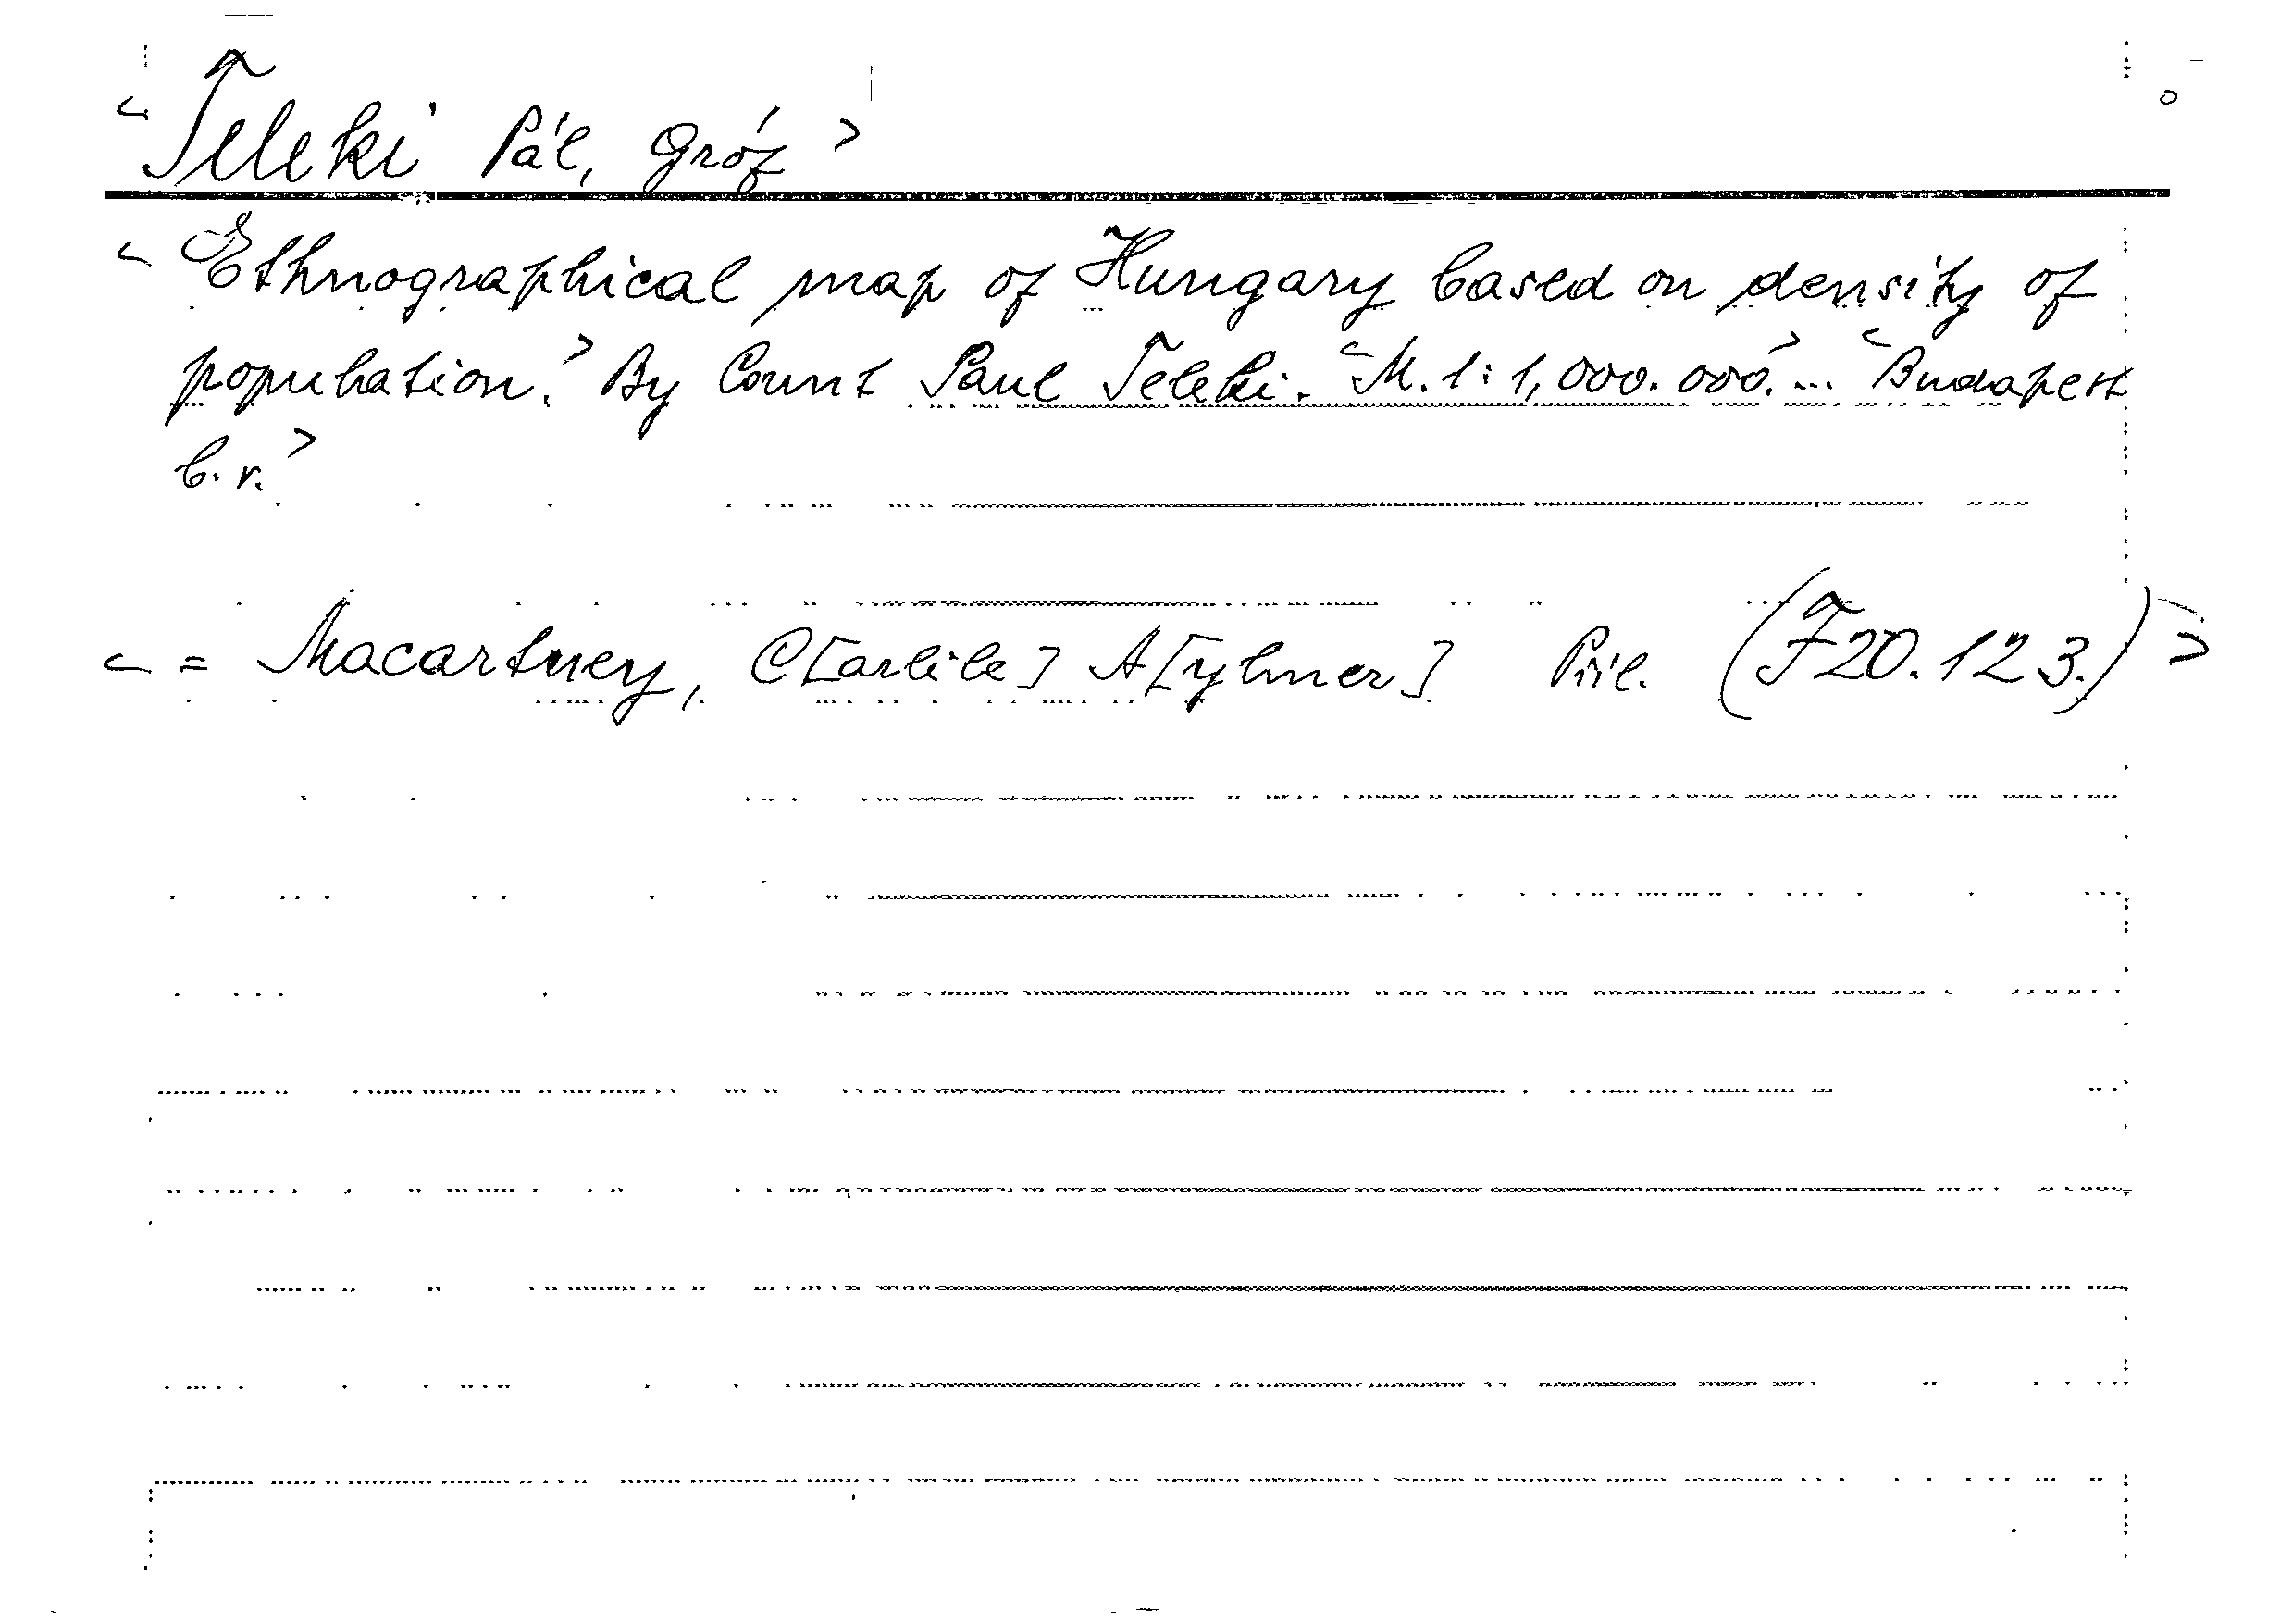 < Teleki Pál, gróf >
< Ethnographical map of Hungary based on density of
population. > By Count Paul Teleki. < M. 1:1,000.000. > ... < Budapest
b. r. >
< = Macartney, C[arlile] A[ylmer] Příl. (F20.123.) >